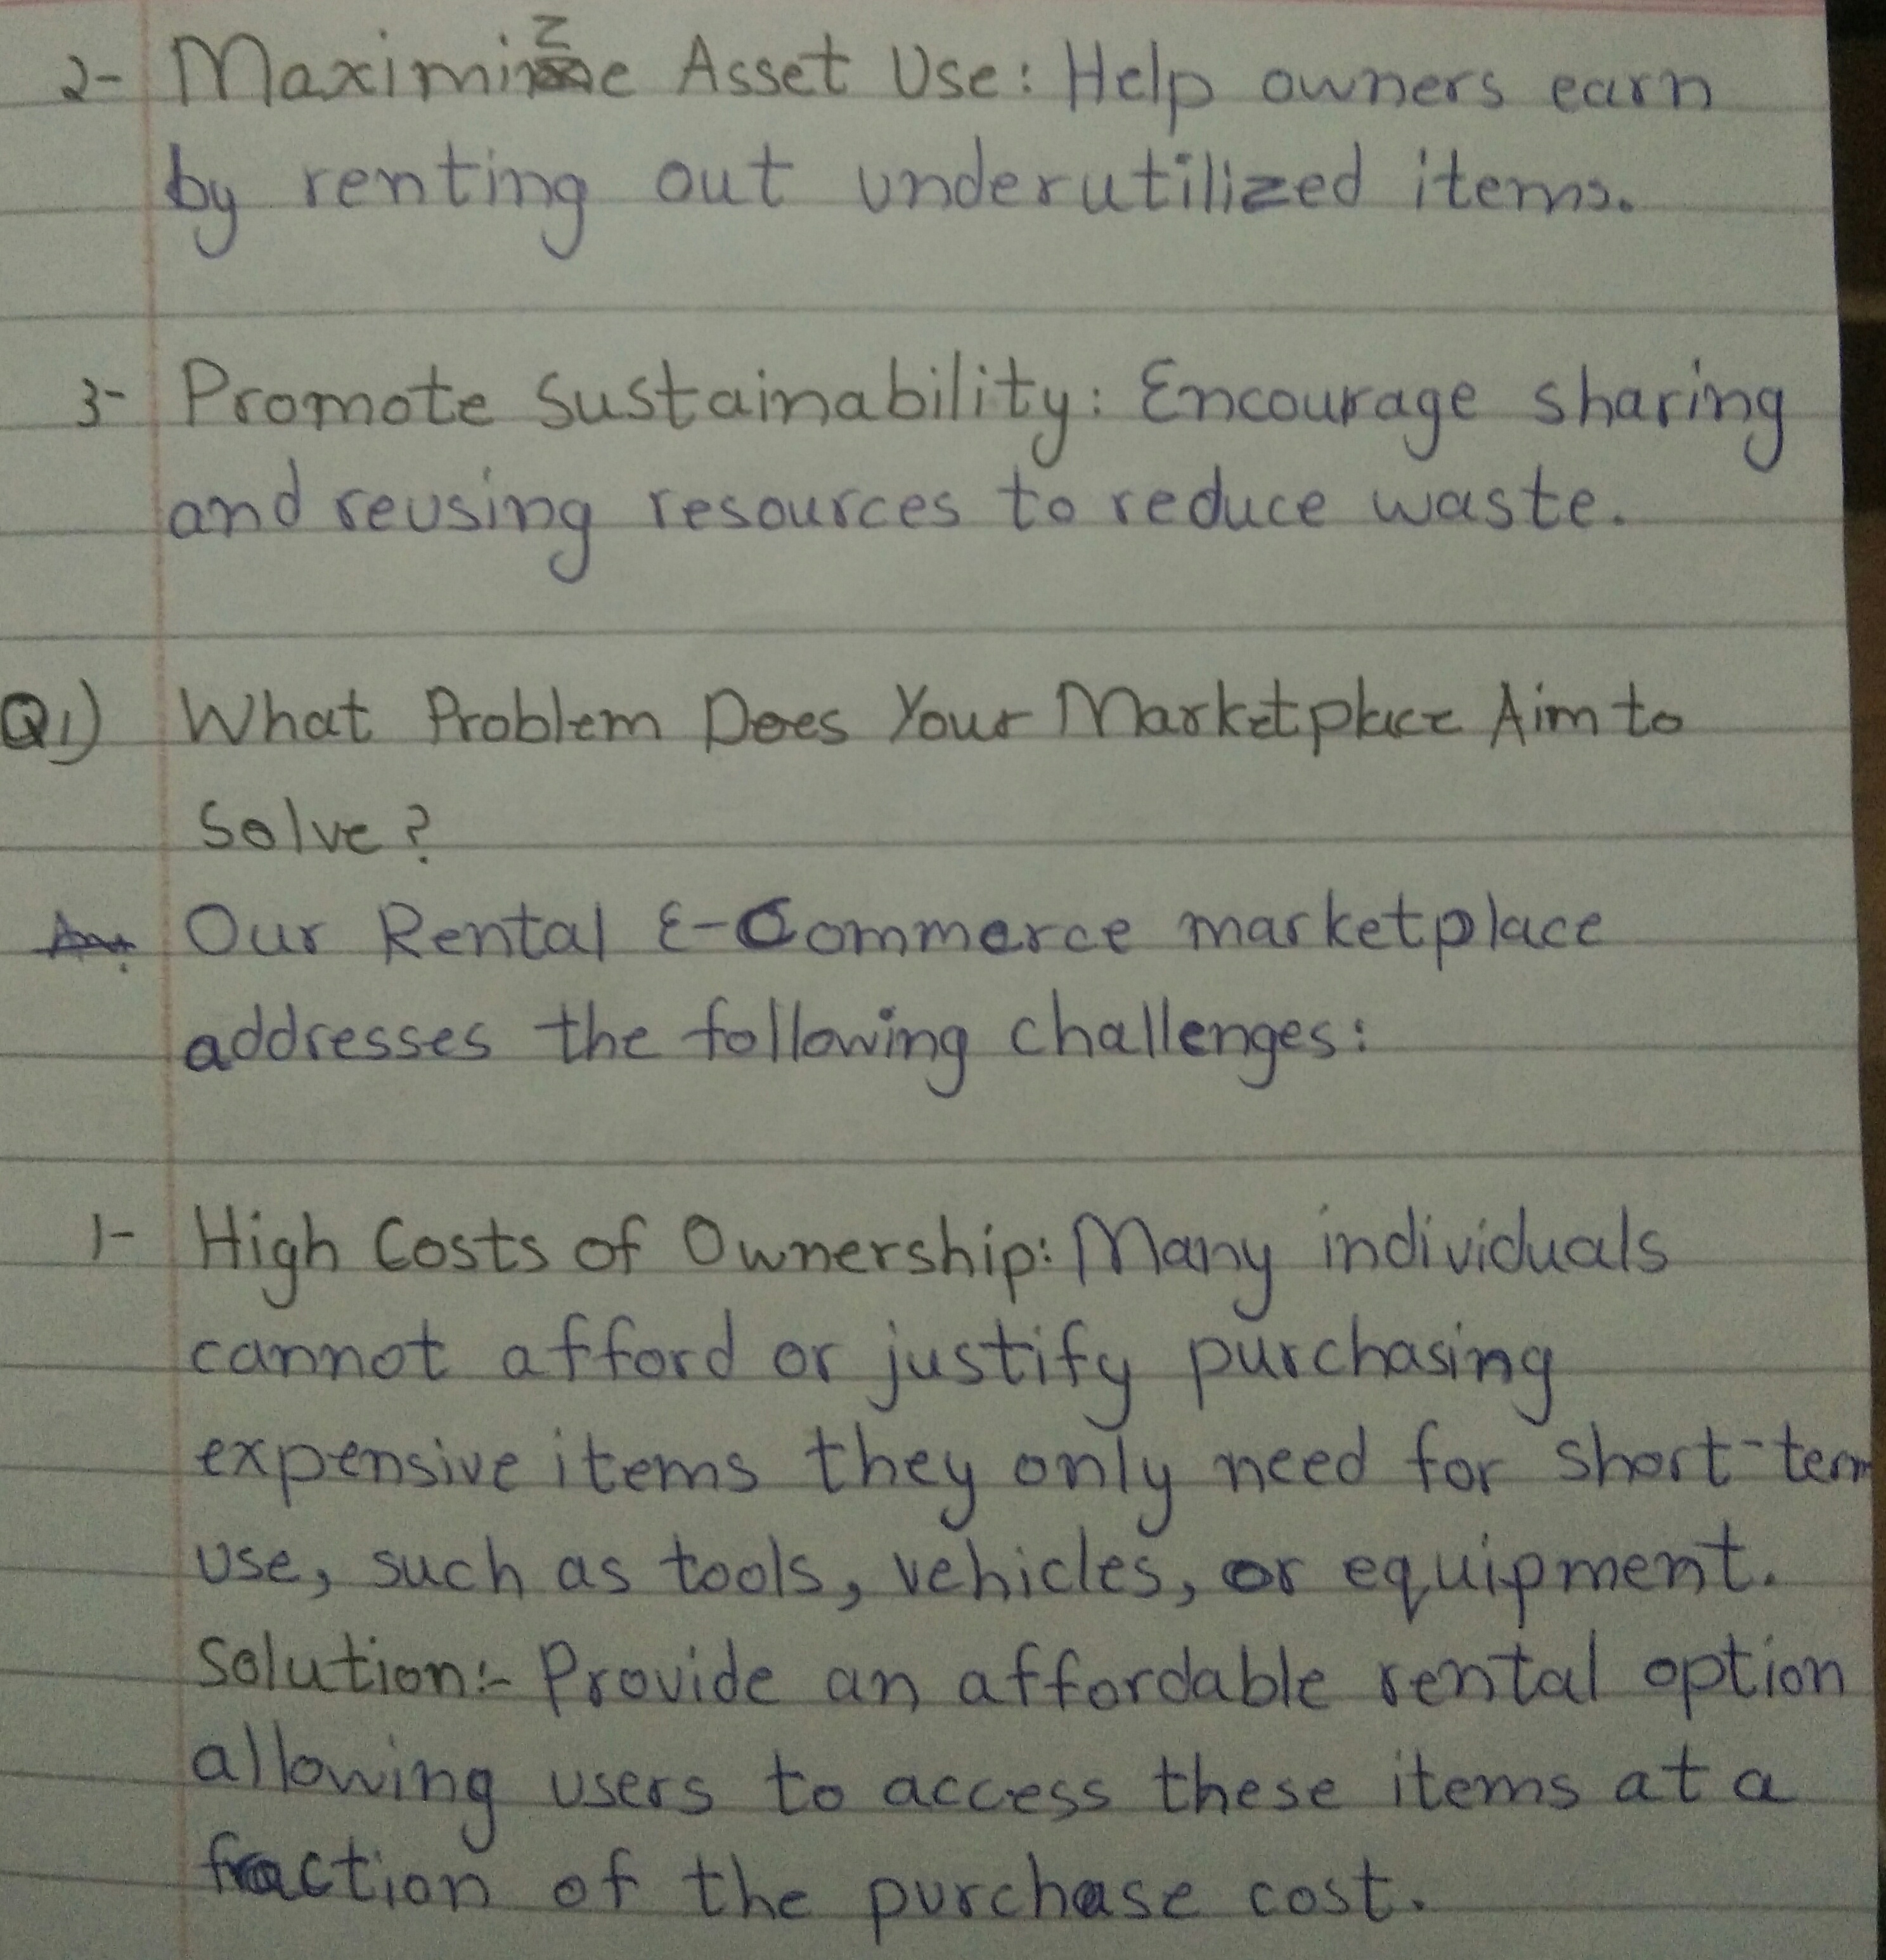 2- Maximize Asset Use: Help owners earn
by renting out underutilized items.
3- Promote Sustainability: Encourage sharing
and reusing resources to reduce waste.
Q1) What Problem Does Your Marketplace Aim to
Solve?
Our Rental E-Commerce marketplace
addresses the following challenges:
1- High Costs of Ownership: Many individuals
cannot afford or justify purchasing
expensive items they only need for short-term
use, such as tools, vehicles, or equipment.
Solution:- Provide an affordable rental option
allowing users to access these items at a
fraction of the purchase cost.